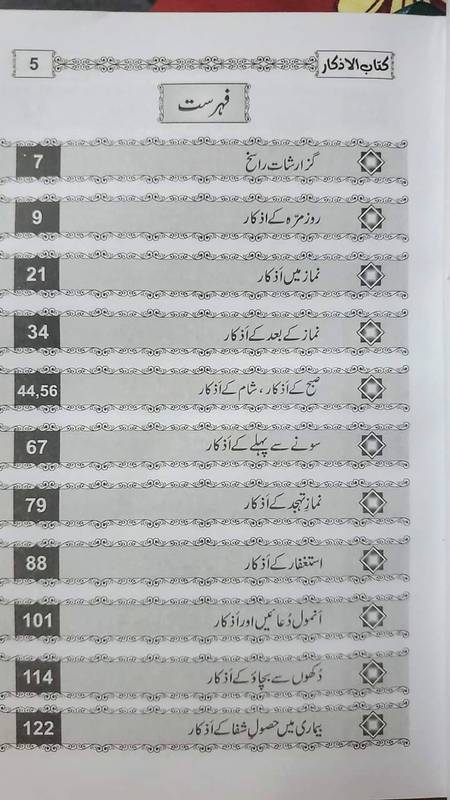 کتاب الاذکار 5
فہرست
گزارشات راسخ 7
روزمرّہ کے اذکار 9
نماز میں اَذکار 21
نماز کے بعد کے اَذکار 34
صبح کے اَذکار، شام کے اَذکار 44,56
سونے سے پہلے کے اَذکار 67
نمازِ تہجد کے اَذکار 79
استغفار کے اَذکار 88
اَنمول دُعائیں اور اَذکار 101
دُکھوں سے بچاؤ کے اَذکار 114
بیماری میں حصولِ شفا کے اَذکار 122